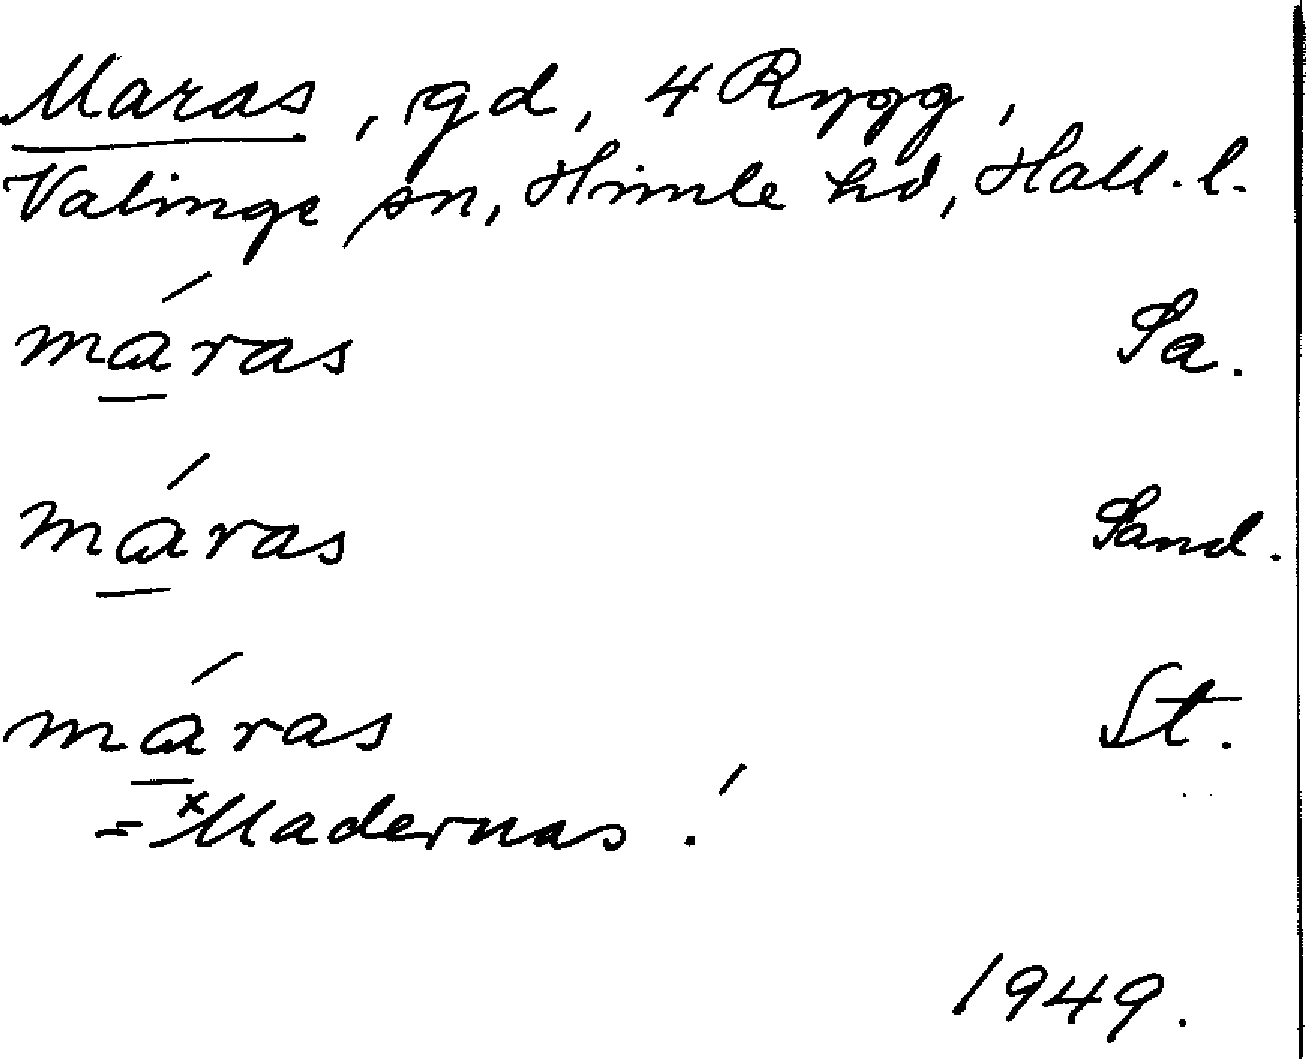 Maras, gd, 4 Rygg,
Valinge sn, Himle hd, Hall. l.
máras Sa.
máras Sand.
máras St.
= *Madernas!
1949.